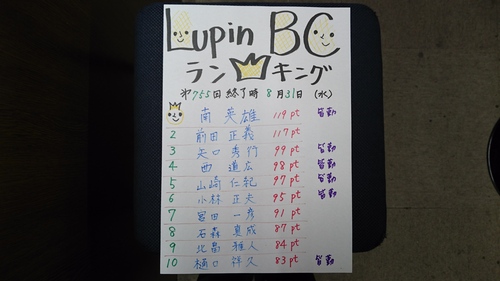 Lupin BC
ランキング
第755回 終了時 8月31日 (水)
南 英雄 119pt 皆勤
2 前田 正義 117pt
3 矢口 秀行 99pt 皆勤
4 西 道広 98pt 皆勤
5 山崎 仁紀 97pt 皆勤
6 小林 正夫 95pt 皆勤
7 富田 一彦 91pt
8 石森 真成 87pt
9 北畠 雅人 84pt
10 樋口 祥久 83pt 皆勤